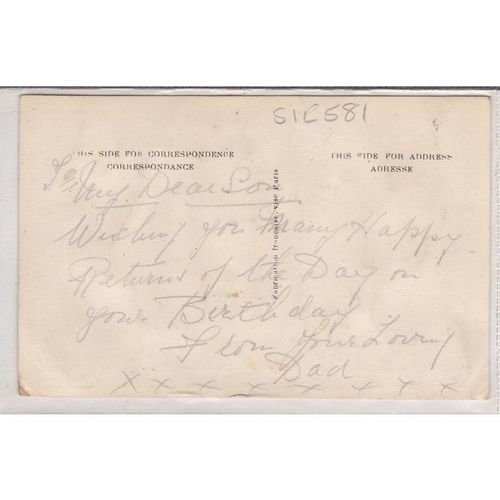 S1C581
THIS SIDE FOR CORRESPONDENCE
CORRESPONDANCE
THIS SIDE FOR ADDRESS
ADRESSE
To My Dear Son
Wishing you Many Happy
Returns of the Day on
your Birthday
From Your Loving
Dad
x x x x x x x x
Fabrication française, Visé Paris